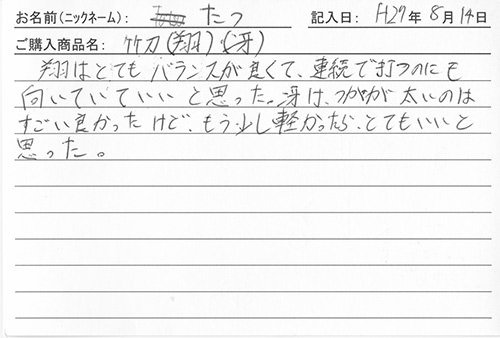 お名前(ニックネーム): たつ 記入日: H27年 8月14日
ご購入商品名: 竹刀(翔)(冴)
翔はとてもバランスが良くて、連続で打つのにも
向いていていいと思った。冴は、つかが太いのは
すごい良かったけど、もう少し軽かったら、とてもいいと
思った。